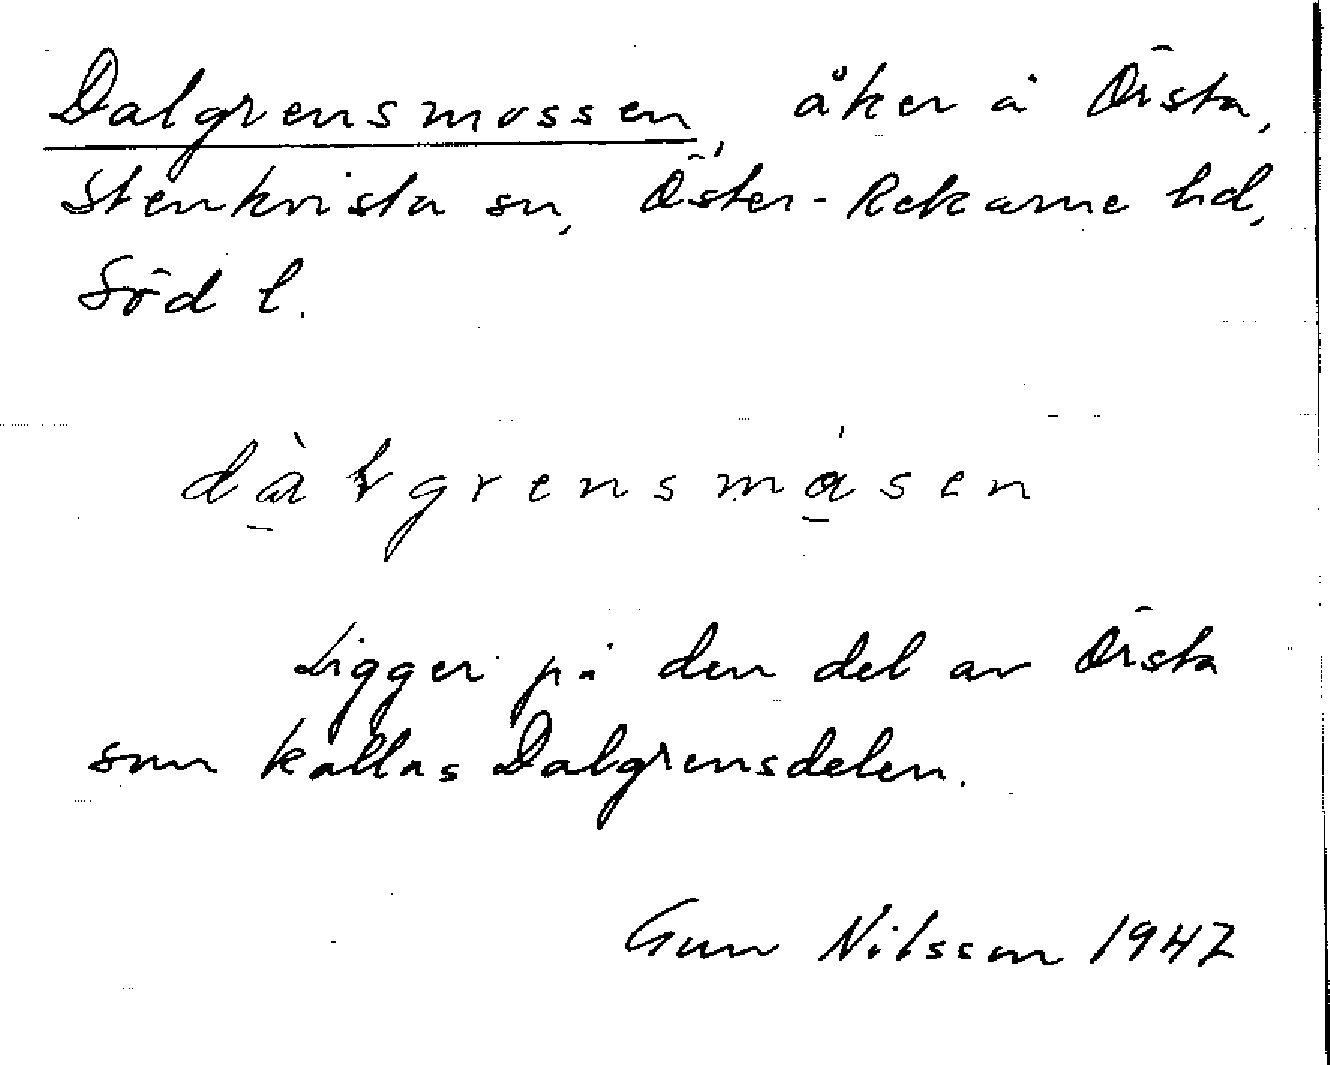 Dalgrensmossen, åker å Örsta,
Stenkvista sn, Öster-Rekarne hd,
Söd l.
dàlgrensmǻsen
Ligger på den del av Örsta
som kallas Dalgrensdelen.
Gun Nilsson 1947